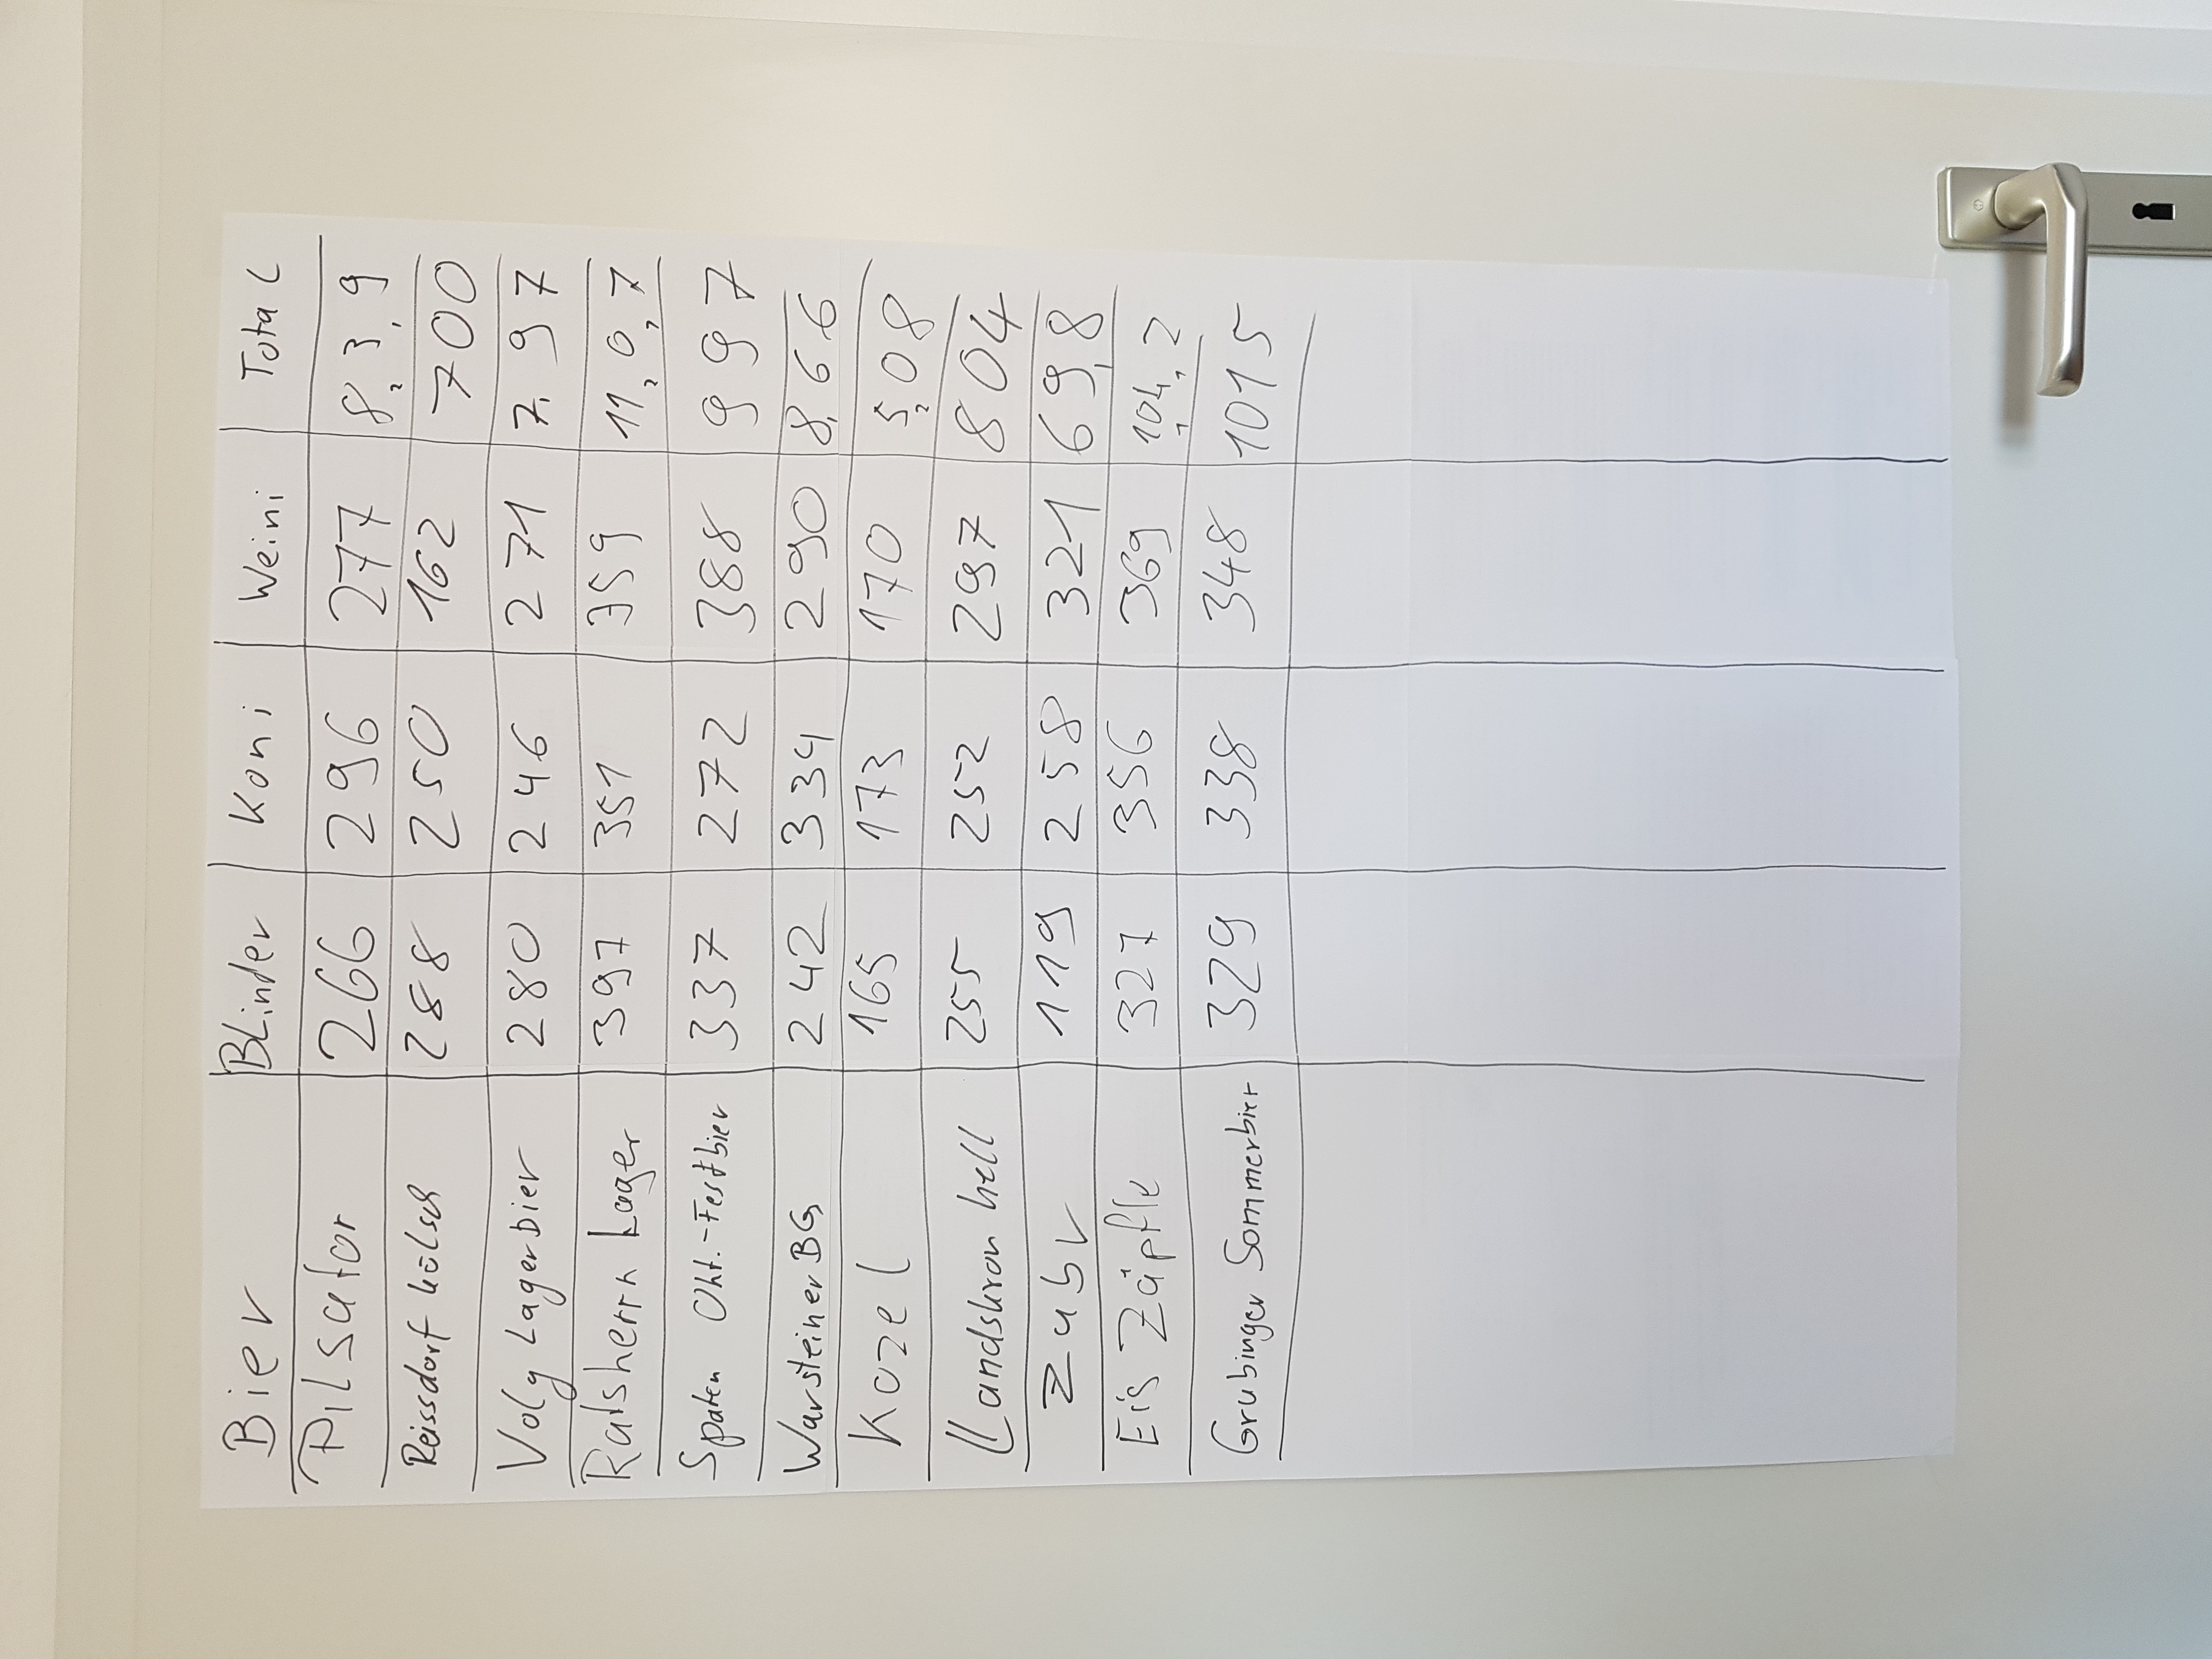 Bier BLinder Koni Weini Total
Pilsator 266 296 277 8.3.9
Reissdorf Kölsch 288 250 162 700
Volg Lagerbier 280 246 271 7.97
Ratsherrn Lager 397 351 359 11.0.7
Spaten Okt.-Festbier 337 272 388 997
Warsteiner BG 242 334 290 8.6.6
Kozel 165 173 170 5.08
Landskron hell 255 252 297 804
Zubr 119 258 321 69.8
Eis Zäpfle 327 356 369 104.2
Grubinger Sommerbier 329 338 348 1015